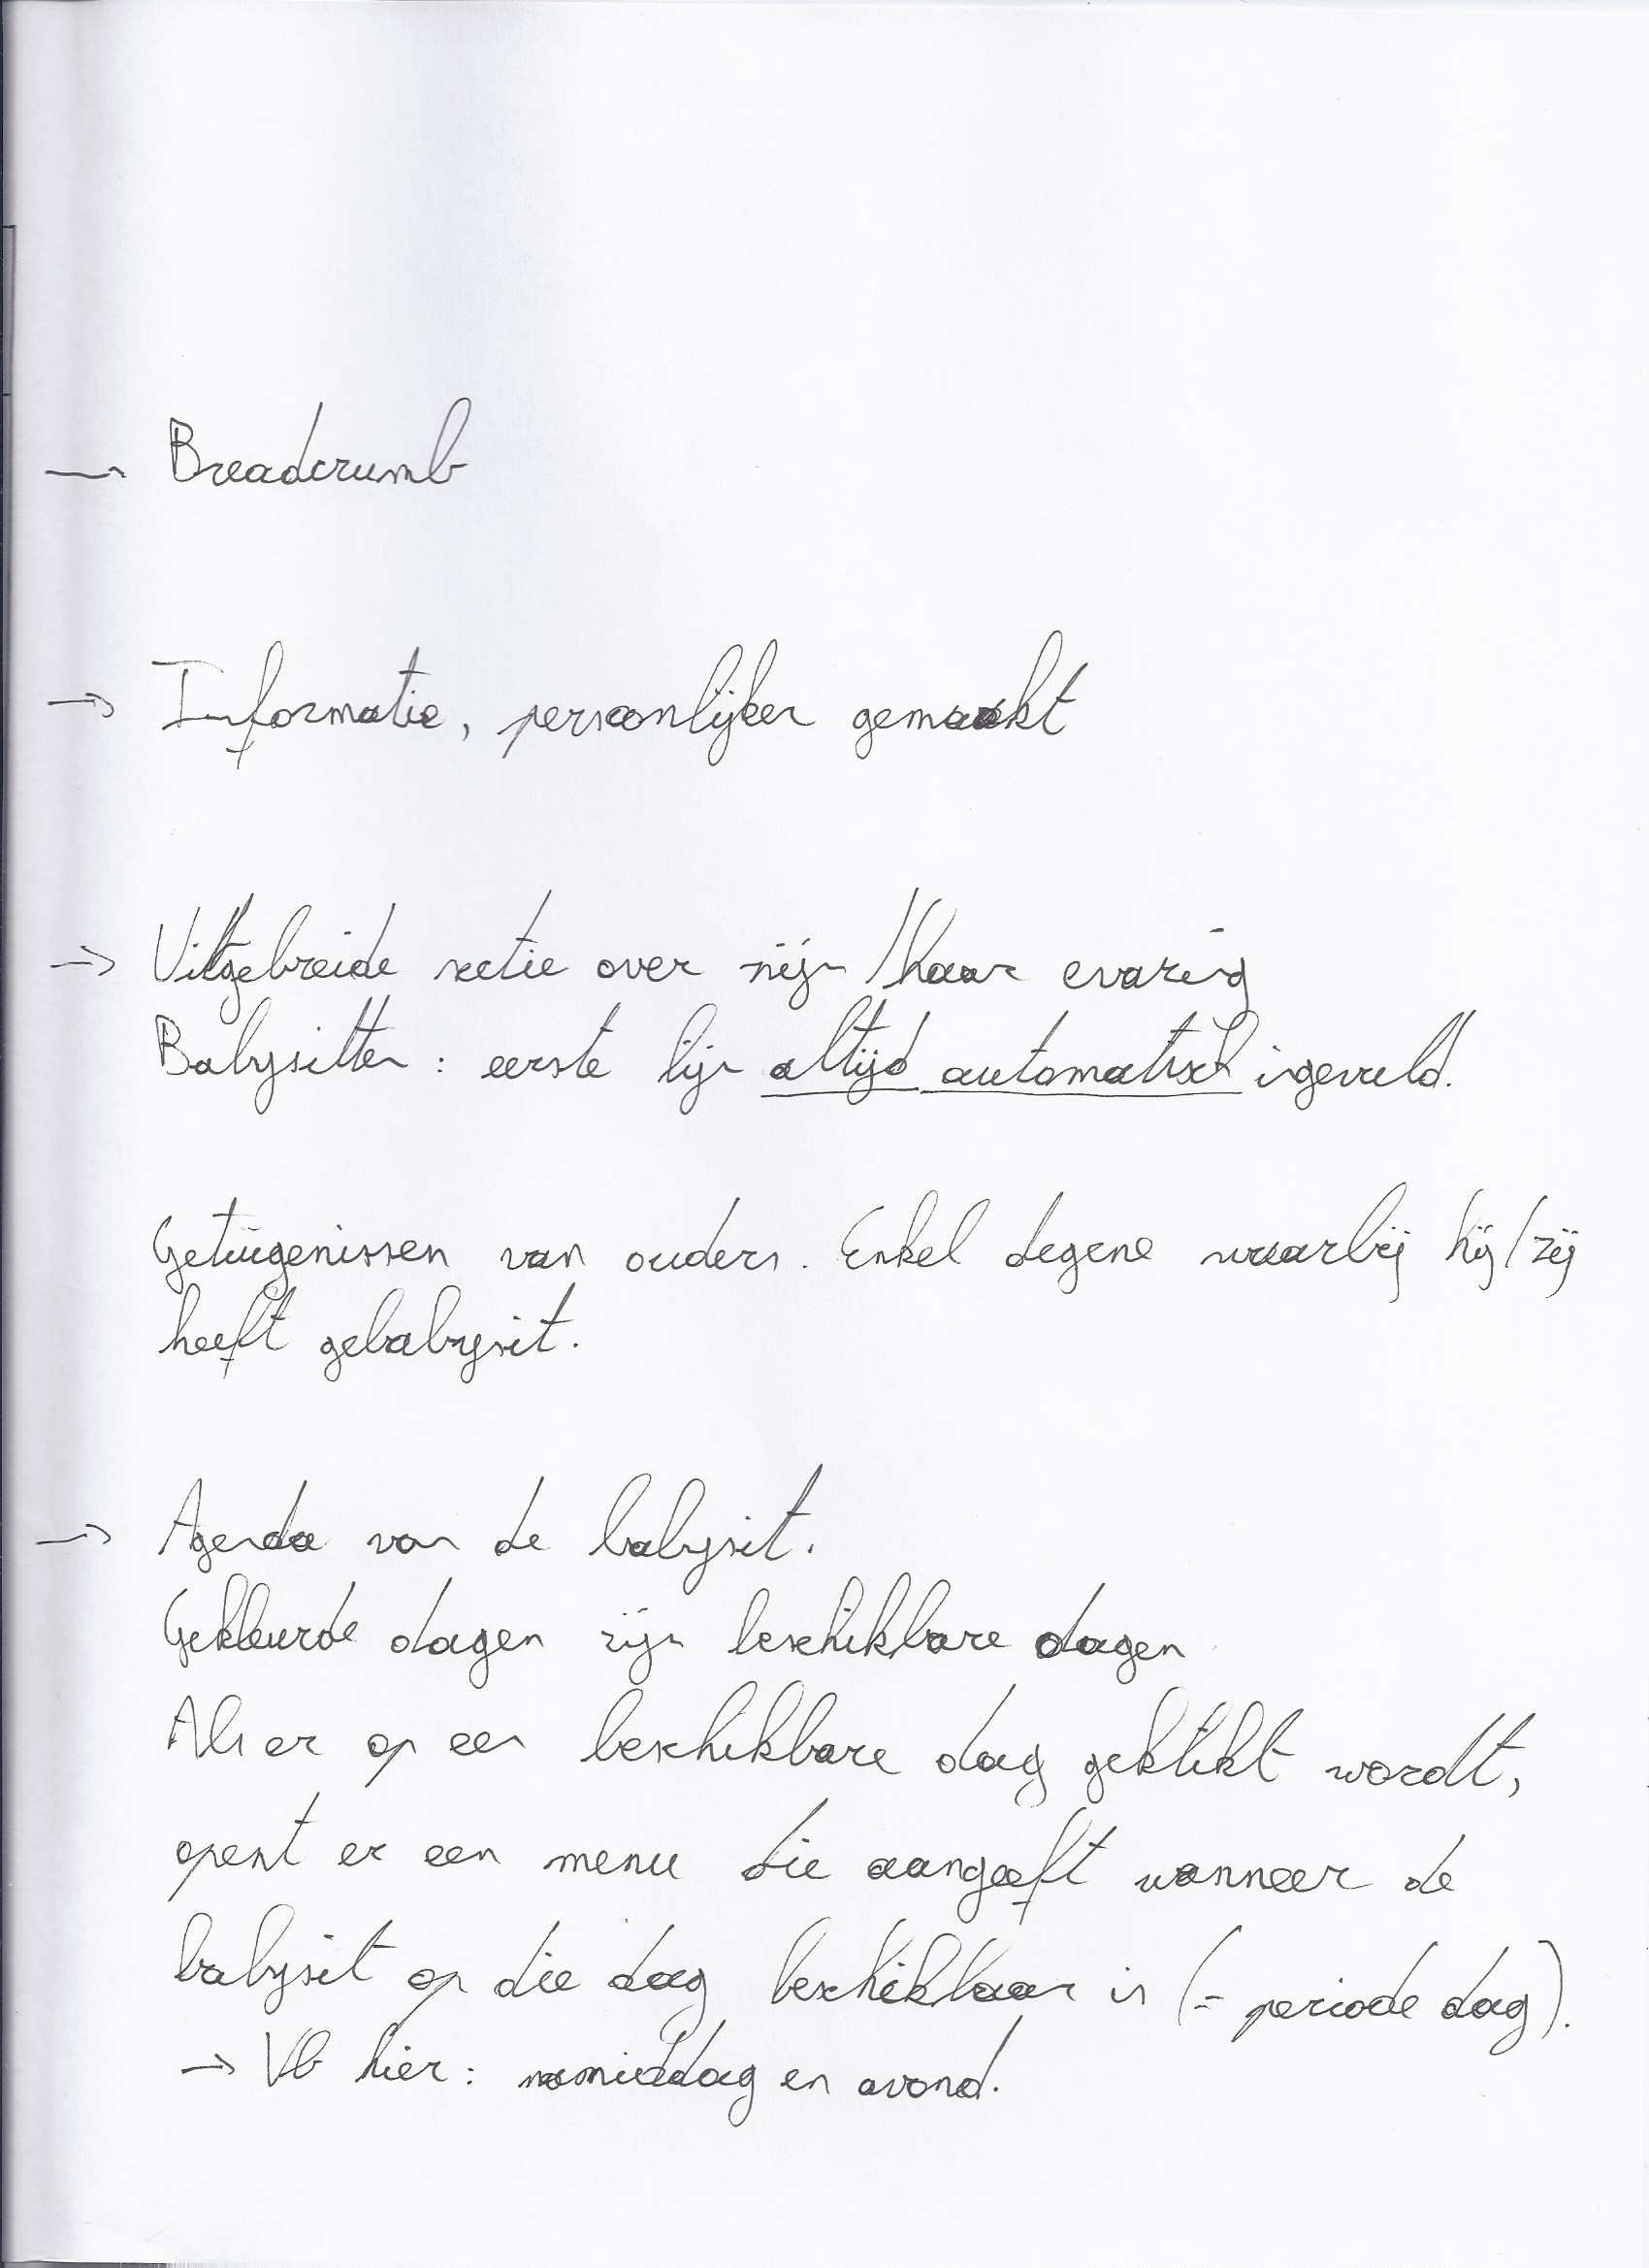 → Breadcrumb
→ Informatie, persoonlijker gemaakt
→ Uitgebreide sectie over zijn/haar ervaring
Babysitter: eerste lijn altijd automatisch ingevuld.
Getuigenissen van ouders. Enkel degene waarbij hij/zij
heeft gebabysit.
→ Agenda van de babysit.
Gekleurde dagen zijn beschikbare dagen
Als er op een beschikbare dag geklikt wordt,
opent er een menu die aangeeft wanneer de
babysit op die dag beschikbaar is (= periode dag).
→ Vb hier: namiddag en avond.